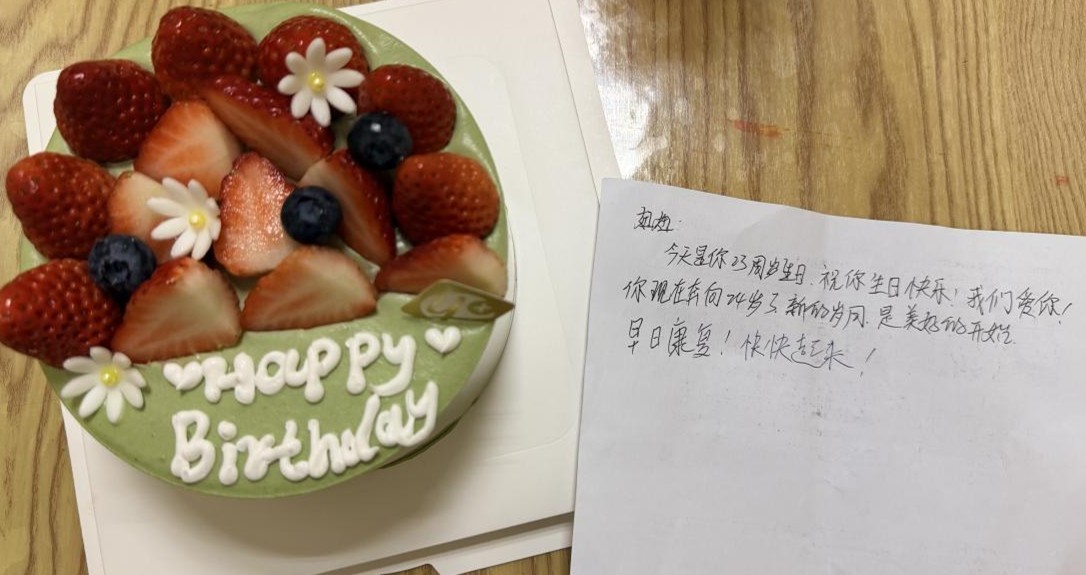 Happy
Birthday
今天是你23周岁生日,祝你生日快乐!我们爱你!
你现在奔向24岁了,新的岁月,是美好的开始.
早日康复!快快起来!